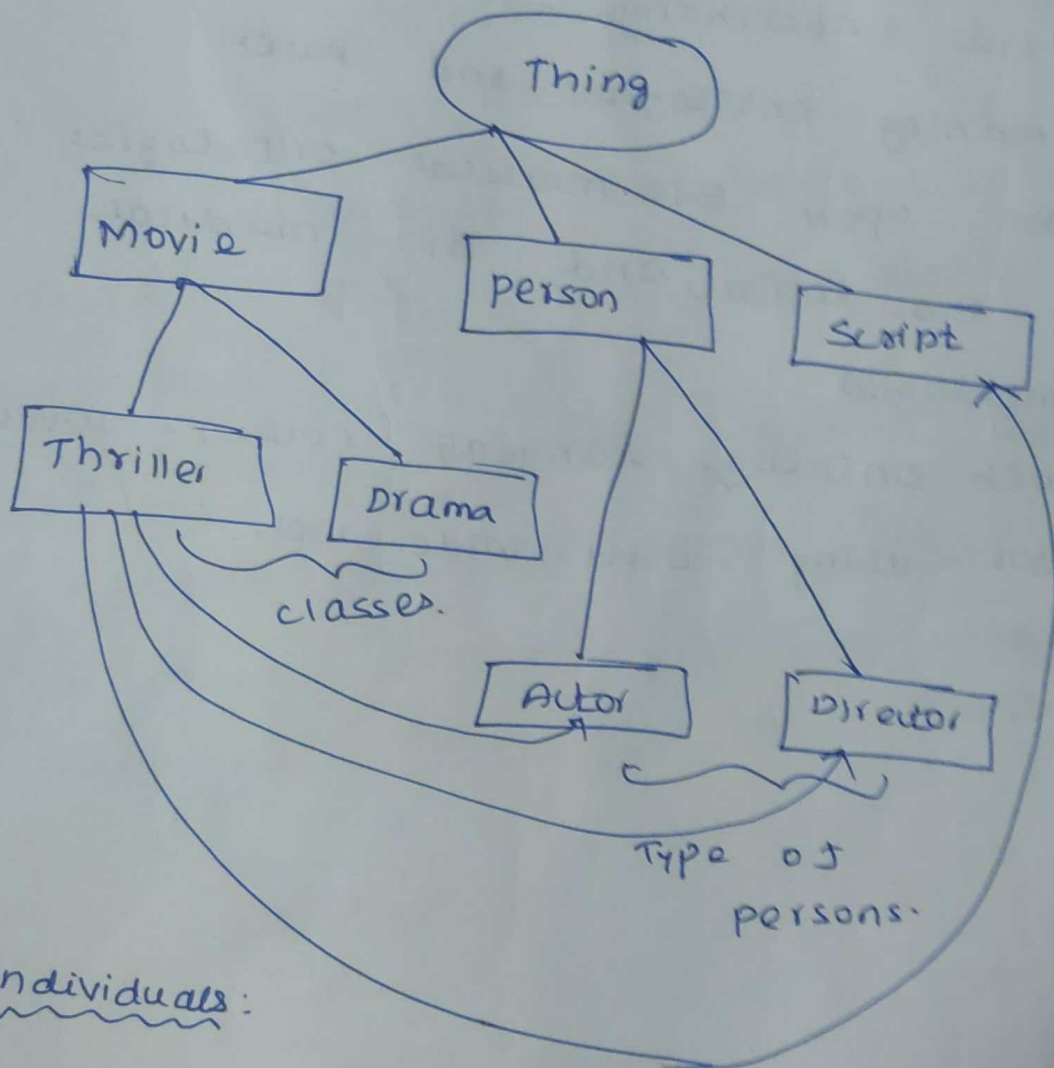 Thing
Movie
person
Script
Thriller
Drama
classes.
Actor
Director
Type of
persons.
ndividuals: